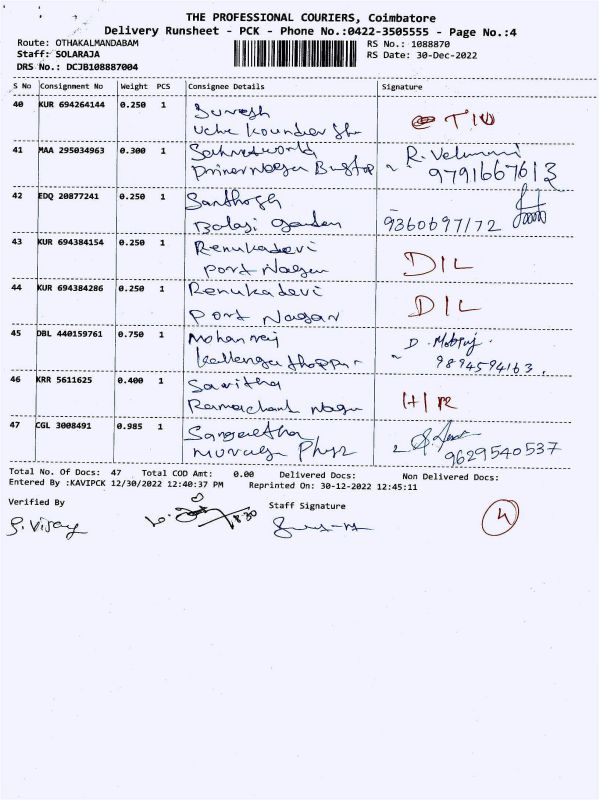 THE PROFESSIONAL COURIERS, Coimbatore
Delivery Runsheet - PCK - Phone No.:0422-3505555 - Page No.:4
Route: OTHAKALMANDABAM RS No.: 1088870
Staff: SOLARAJA RS Date: 30-Dec-2022
DRS No.: DCJB108887004
S No Consignment No Weight PCS Consignee Details Signature
40 KUR 694264144 0.250 1 Suresh
41 MAA 295034963 0.300 1 R. Velumani
9791667613
42 EDQ 20877241 0.250 1 Santhosh
Balaji Garden 9360697172
43 KUR 694384154 0.250 1 Renukadevi
Port Nagar DIL
44 KUR 694384286 0.250 1 Renukadevi
Port Nagar DIL
45 DBL 440159761 0.750 1 Mohanraj D.
9894594163.
46 KRR 5611625 0.400 1 Savitha
Nagar
47 CGL 3008491 0.985 1 Sangeetha
9629540537
Total No. Of Docs: 47 Total COD Amt: 0.00 Delivered Docs: Non Delivered Docs:
Entered By :KAVIPCK 12/30/2022 12:40:37 PM Reprinted On: 30-12-2022 12:45:11
Verified By Staff Signature
S. Vijay 18.30
4